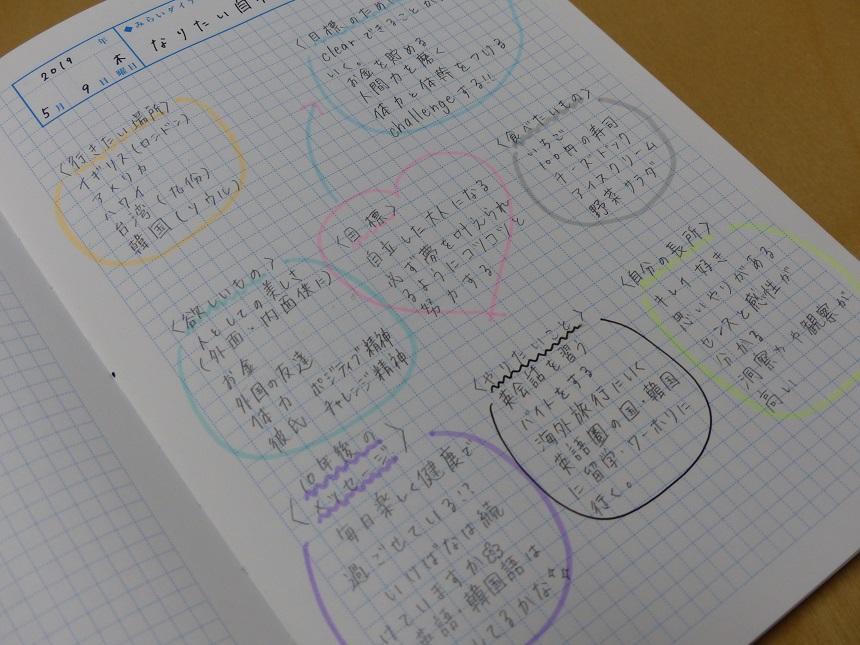 2019 年
5月 9日 木曜日
◆みらいダイ
なりたい自
〈目標のため
clearできることが
いく。
お金を貯める
人間力を磨く
体力と体幹をつける
challengeする!!
〈行きたい場所〉
イギリス(ロンドン)
アメリカ
ハワイ
台湾(九份)
韓国(ソウル)
〈食べたいもの〉
いちご
100円の寿司
チーズドック
アイスクリーム
野菜サラダ
〈目標〉
自立した大人になる
必ず夢を叶えられ
るようにコツコツと
努力する
〈欲しいもの〉
人としての美しさ
(外面・内面供に)
お金
外国の友達
体力 ポジティブ精神
彼氏 チャレンジ精神
〈自分の長所〉
キレイ好き
思いやりがある
センスと感性が
分かる
洞察力や観察が
高い
〈やりたいこと〉
英会話を習う
バイトをする
海外旅行にいく
英語圏の国・韓国
に留学・ワーホリに
行く。
10年後の
〈メッセージ〉
毎日楽しく健康で
過ごせている!?
いけばなは続
けていますか
英語・韓国語は
してるかな